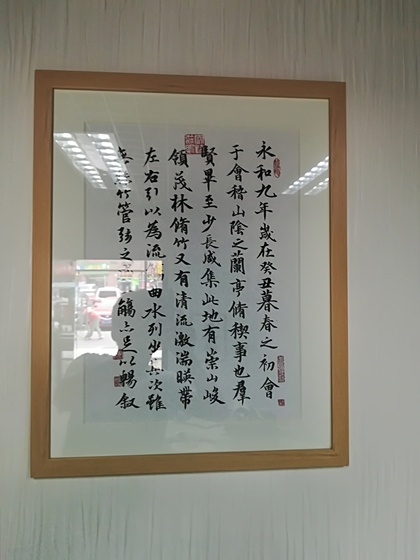 永和九年歲在癸丑暮春之初會
于會稽山陰之蘭亭脩稧事也羣
賢畢至少長咸集此地有崇山峻
領茂林脩竹又有清流激湍暎帶
左右引以為流曲水列坐其次雖
無竹管弦之觴亦足以暢叙